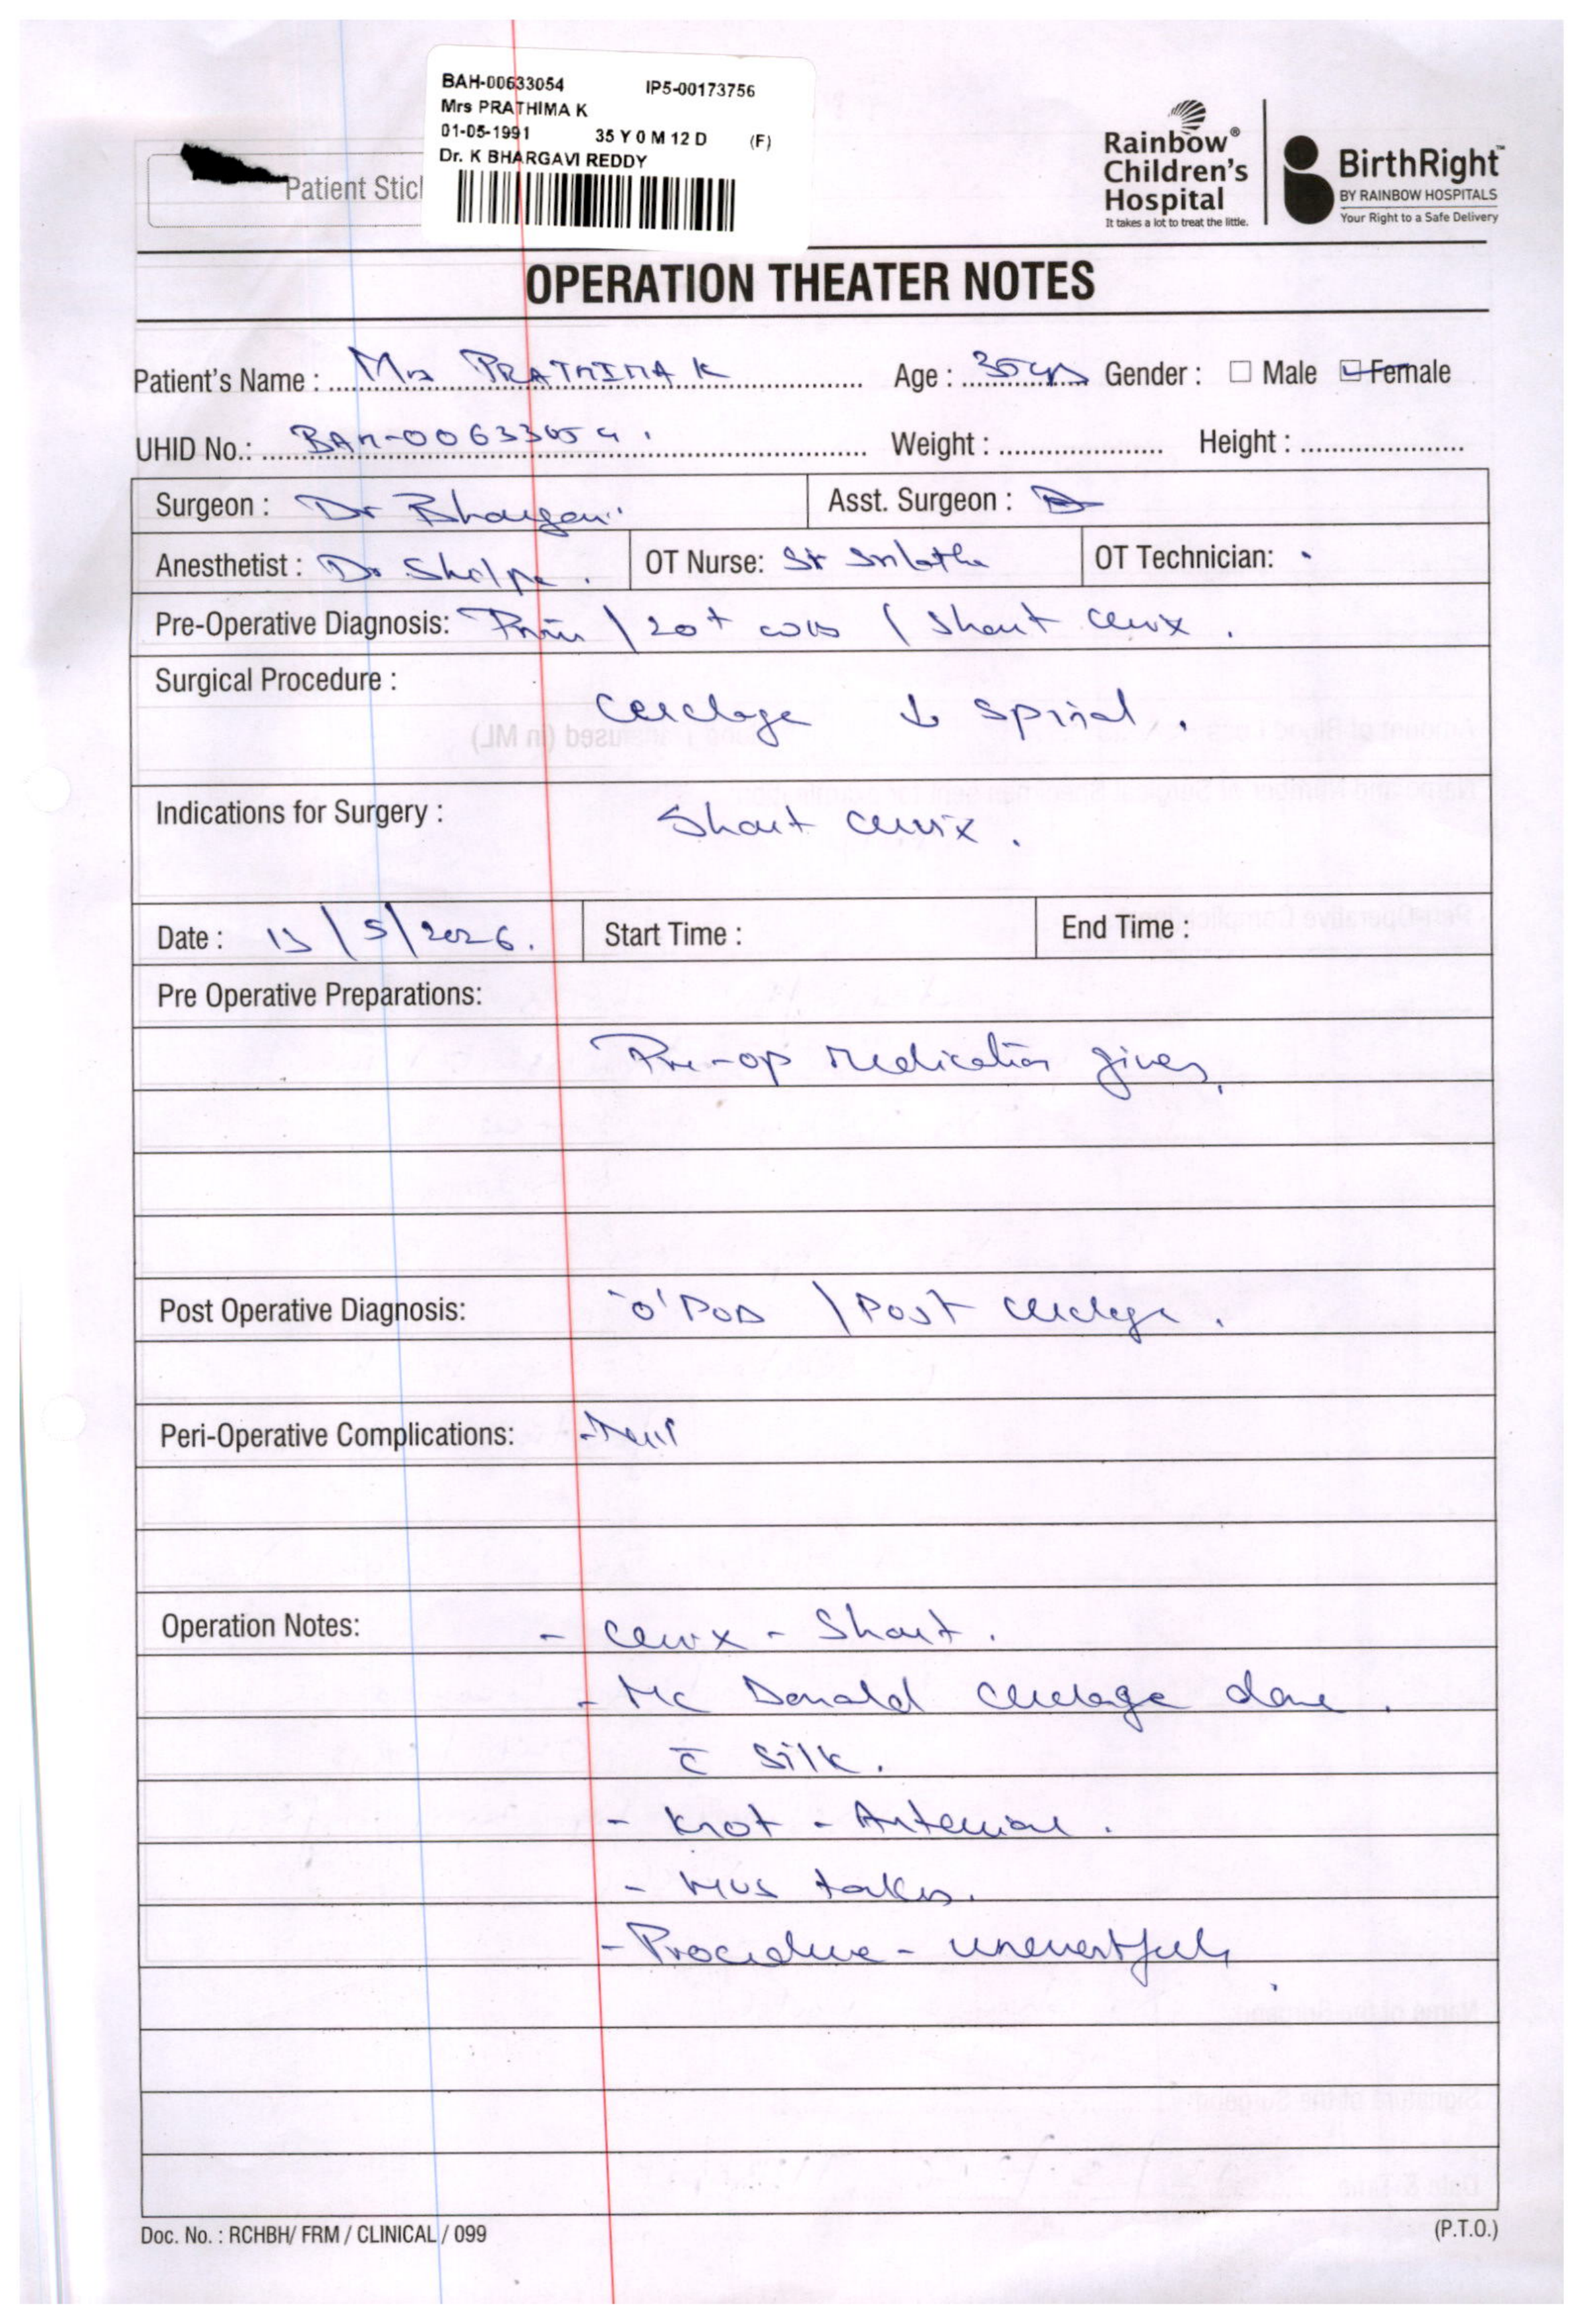 BAH-00633054 IP5-00173756
Mrs PRATHIMA K
01-05-1991 35 Y 0 M 12 D (F)
Dr. K BHARGAVI REDDY
Patient Stic
Rainbow®
Children's
Hospital
It takes a lot to treat the little.
BirthRight™
BY RAINBOW HOSPITALS
Your Right to a Safe Delivery
OPERATION THEATER NOTES
Patient's Name : Mrs PRATHIMA K Age : 35yrs Gender : Male Female
UHID No.: BAH-00633054. Weight : Height :
Surgeon : Dr Bhargavi Asst. Surgeon :
Anesthetist : Dr Shilpa. OT Nurse: Sr Srilatha OT Technician:
Pre-Operative Diagnosis: Primi / 20+ wks / Short cervix.
Surgical Procedure :
Cerclage ↓ Spinal.
Indications for Surgery :
Short cervix.
Date : 13/5/2026. Start Time : End Time :
Pre Operative Preparations:
Pre-op medication given.
Post Operative Diagnosis: 'O' POD / Post cerclage.
Peri-Operative Complications: - Nil
Operation Notes:
- Cervix - Short.
- Mc Donald cerclage done.
c̄ silk.
- Knot - Anterior.
- HVS taken.
- Procedure - uneventful.
Doc. No. : RCHBH/ FRM / CLINICAL / 099
(P.T.O.)